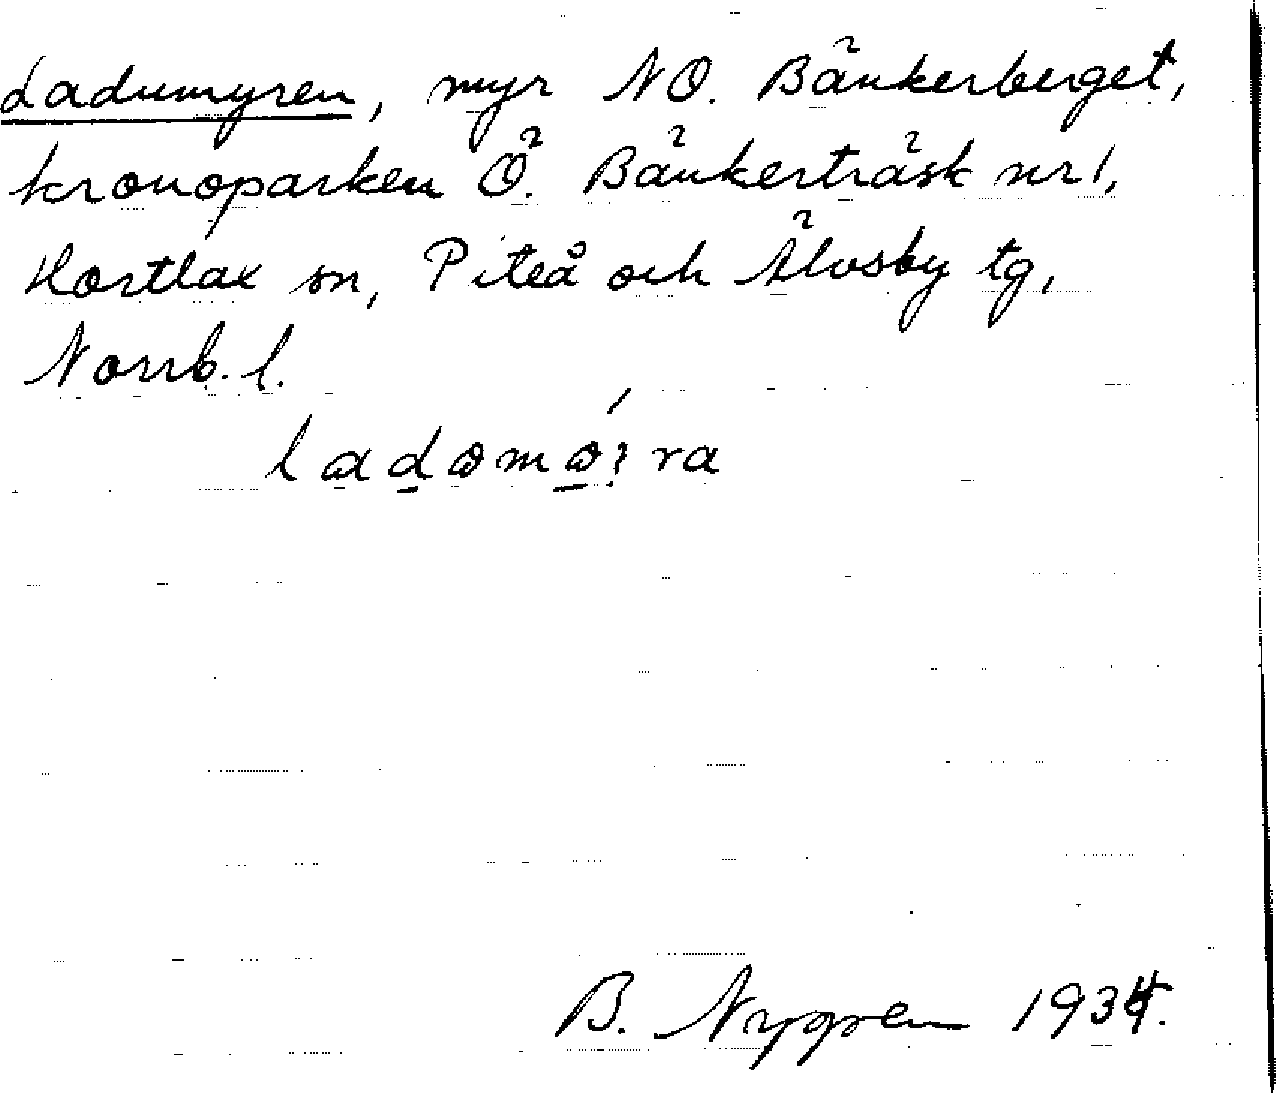 Ladumyren, myr NO. Bänkerberget,
kronoparken Ö. Bänkerträsk nr 1,
Hortlax sn, Piteå och Älvsby tg,
Norrb. l.
B. Nygren 1934.